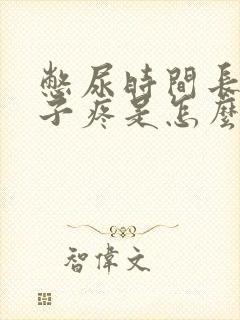 憋尿時間長
子疼是怎麼
智偉文